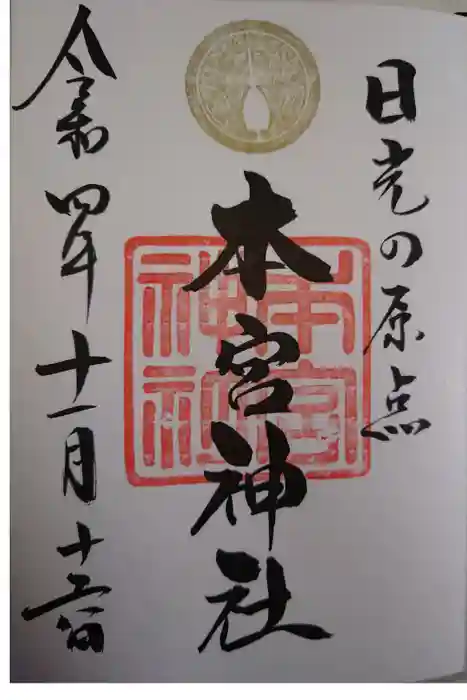 日光の原点
本宮神社
本宮
神社
令和四年十一月十三日